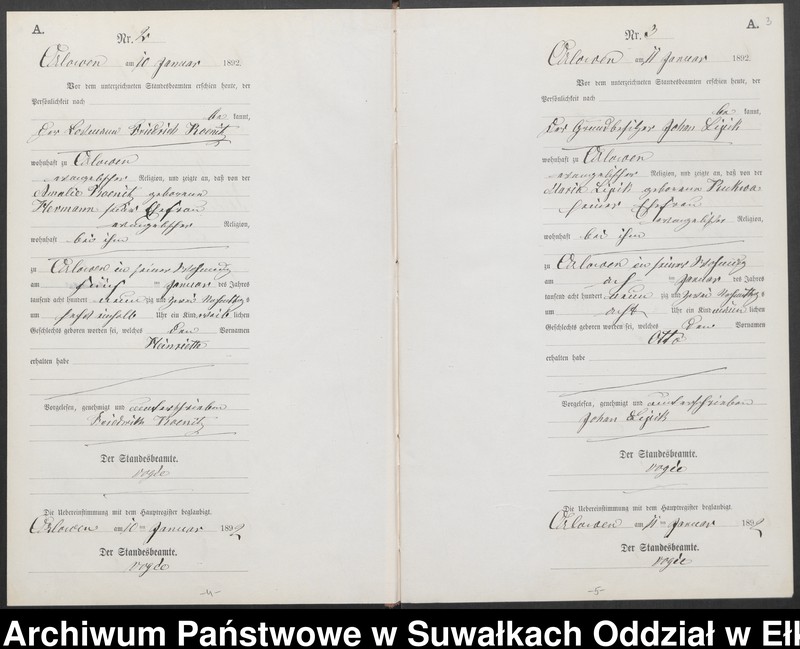 A.
Nr. 2
Orlowen am 10 Januar 1892.
Vor dem unterzeichneten Standesbeamten erschien heute, der
Persönlichkeit nach
be kannt,
Der Losmann Friedrich Koenitz
wohnhaft zu Orlowen
evangelischer Religion, und zeigte an, daß von der
Amalie Koenitz geborenen
Hermann seiner Ehefrau
evangelischer Religion,
wohnhaft bei ihm
zu Orlowen in seiner Wohnung
am ten Januar des Jahres
tausend acht hundert neun zig und zwei Nachmittags
um Uhr ein Kind weib lichen
Geschlechts geboren worden sei, welches den Vornamen
Henriette
erhalten habe
Vorgelesen, genehmigt und unterschrieben
Friedrich Koenitz
Der Standesbeamte.
Die Uebereinstimmung mit dem Hauptregister beglaubigt.
Orlowen am 10 ten Januar 1892
Der Standesbeamte.
-4-
A. 3
Nr. 3
Orlowen am 11 Januar 1892.
Vor dem unterzeichneten Standesbeamten erschien heute, der
Persönlichkeit nach
be kannt,
Der Grundbesitzer Johan Lipik
wohnhaft zu Orlowen
evangelischer Religion, und zeigte an, daß von der
Marie Lipik geborenen Kukwa
seiner Ehefrau
evangelischer Religion,
wohnhaft bei ihm
zu Orlowen in seiner Wohnung
am ten Januar des Jahres
tausend acht hundert neun zig und zwei Nachmittags
um acht Uhr ein Kind männ lichen
Geschlechts geboren worden sei, welches den Vornamen
Otto
erhalten habe
Vorgelesen, genehmigt und unterschrieben
Johan Lipik
Der Standesbeamte.
Die Uebereinstimmung mit dem Hauptregister beglaubigt.
Orlowen am 11 ten Januar 1892
Der Standesbeamte.
-5-
Archiwum Państwowe w Suwałkach Oddział w Ełk